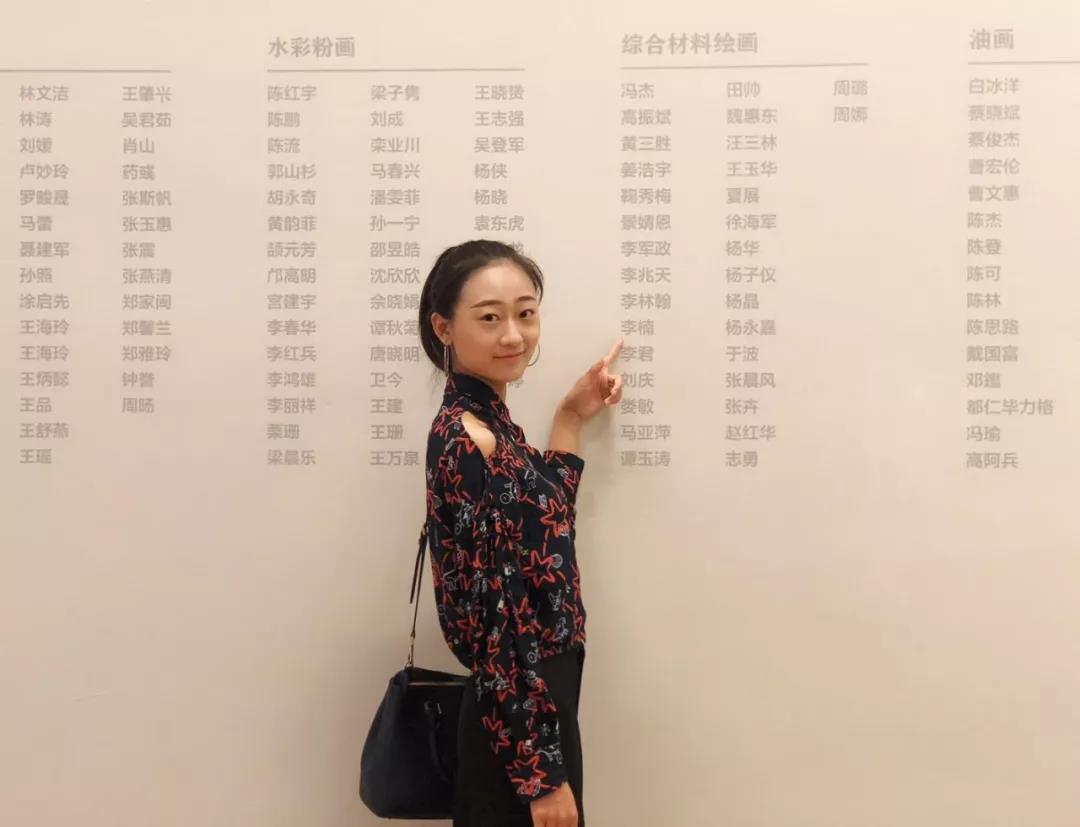 林文洁 王肇兴
林涛 吴君茹
刘媛 肖山
卢妙玲 药彧
罗畯晟 张斯帆
马蕾 张玉惠
聂建军 张震
孙照 张燕清
涂启先 郑家闽
王海玲 郑馨兰
王海玲 郑雅玲
王炳懿 钟誉
王品 周旸
王舒燕
王瑶
水彩粉画
陈红宇 梁子隽 王晓赟
陈鹏 刘成 王志强
陈流 栾业川 吴登军
郭山杉 马春兴 杨侠
胡永奇 潘雯菲 杨晓
黄韵菲 孙一宁 袁东虎
颉元芳 邵昱皓
邝高明 沈欣欣
宫建宇 佘晓娟
李春华 谭秋菊
李红兵 唐晓明
李鸿雄 卫今
李丽祥 王建
栗珊 王珊
梁晨乐 王万泉
综合材料绘画
冯杰 田帅 周璐
高振斌 魏惠东 周娜
黄三胜 汪三林
姜浩宇 王玉华
鞠秀梅 夏展
景婧恩 徐海军
李军政 杨华
李兆天 杨子仪
李林翰 杨晶
李楠 杨永嘉
李君 于波
刘庆 张晨风
娄敏 张卉
马亚萍 赵红华
谭玉涛 志勇
油画
白冰洋
蔡晓斌
蔡俊杰
曹宏伦
曹文惠
陈杰
陈登
陈可
陈林
陈思路
戴国富
邓鑑
都仁毕力格
冯瑜
高阿兵